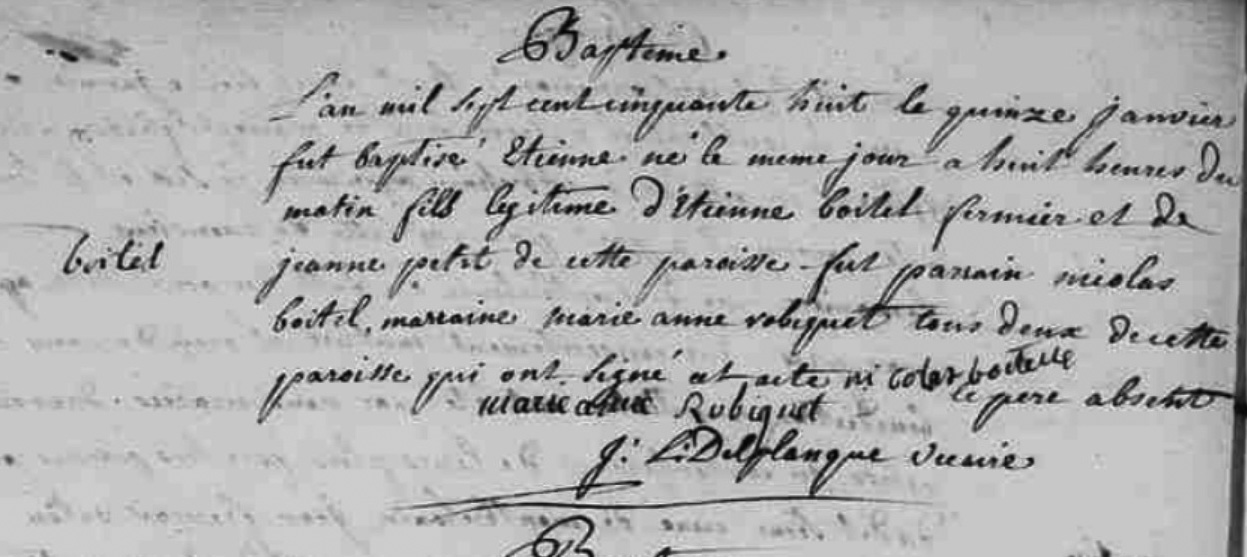 Bapteme
L'an mil sept cent cinquante huit le quinze janvier
fut baptisé Etienne né le meme jour a huit heures du
matin fils legitime d'Etienne boitel fermier et de
boitel
jeanne petit de cette paroisse fut parrain nicolas
boitel, marraine marie anne robiquet tous deux de cette
paroisse qui ont signé cet acte le pere absent
nicolas boitelle
marie anne Robiquet
j: L: Delplanque vicaire